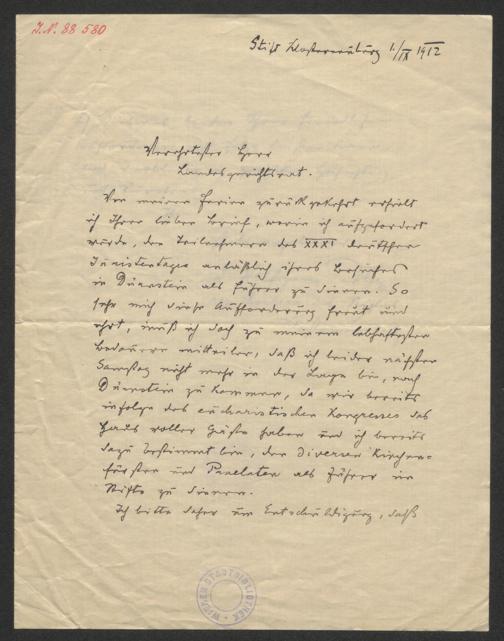 J.N. 88 580
Stift Klosterneuburg 1./IX 1912
Verehrtester Herr
Landesgerichtsrat.
Von meinen Ferien zurückgekehrt erhielt
ich Ihren lieben Brief, worin ich aufgefordert
wurde, den Teilnehmern des XXXI deutschen
Juristentages anläßlich ihres Besuches
in Dürnstein als Führer zu dienen. So
sehr mich diese Aufforderung freut und
ehrt, muß ich doch zu meinem lebhaftesten
Bedauern mitteilen, daß ich leider nächsten
Samstag nicht mehr in der Lage bin, nach
Dürnstein zu kommen, da wir bereits
infolge des eucharistischen Kongresses das
Haus voller Gäste haben und ich bereits
dazu bestimmt bin, den diversen Kirchen-
fürsten und Praelaten als Führer im
Stifte zu dienen.
Ich bitte daher um Entschuldigung, daß
WIENER STADTBIBLIOTHEK